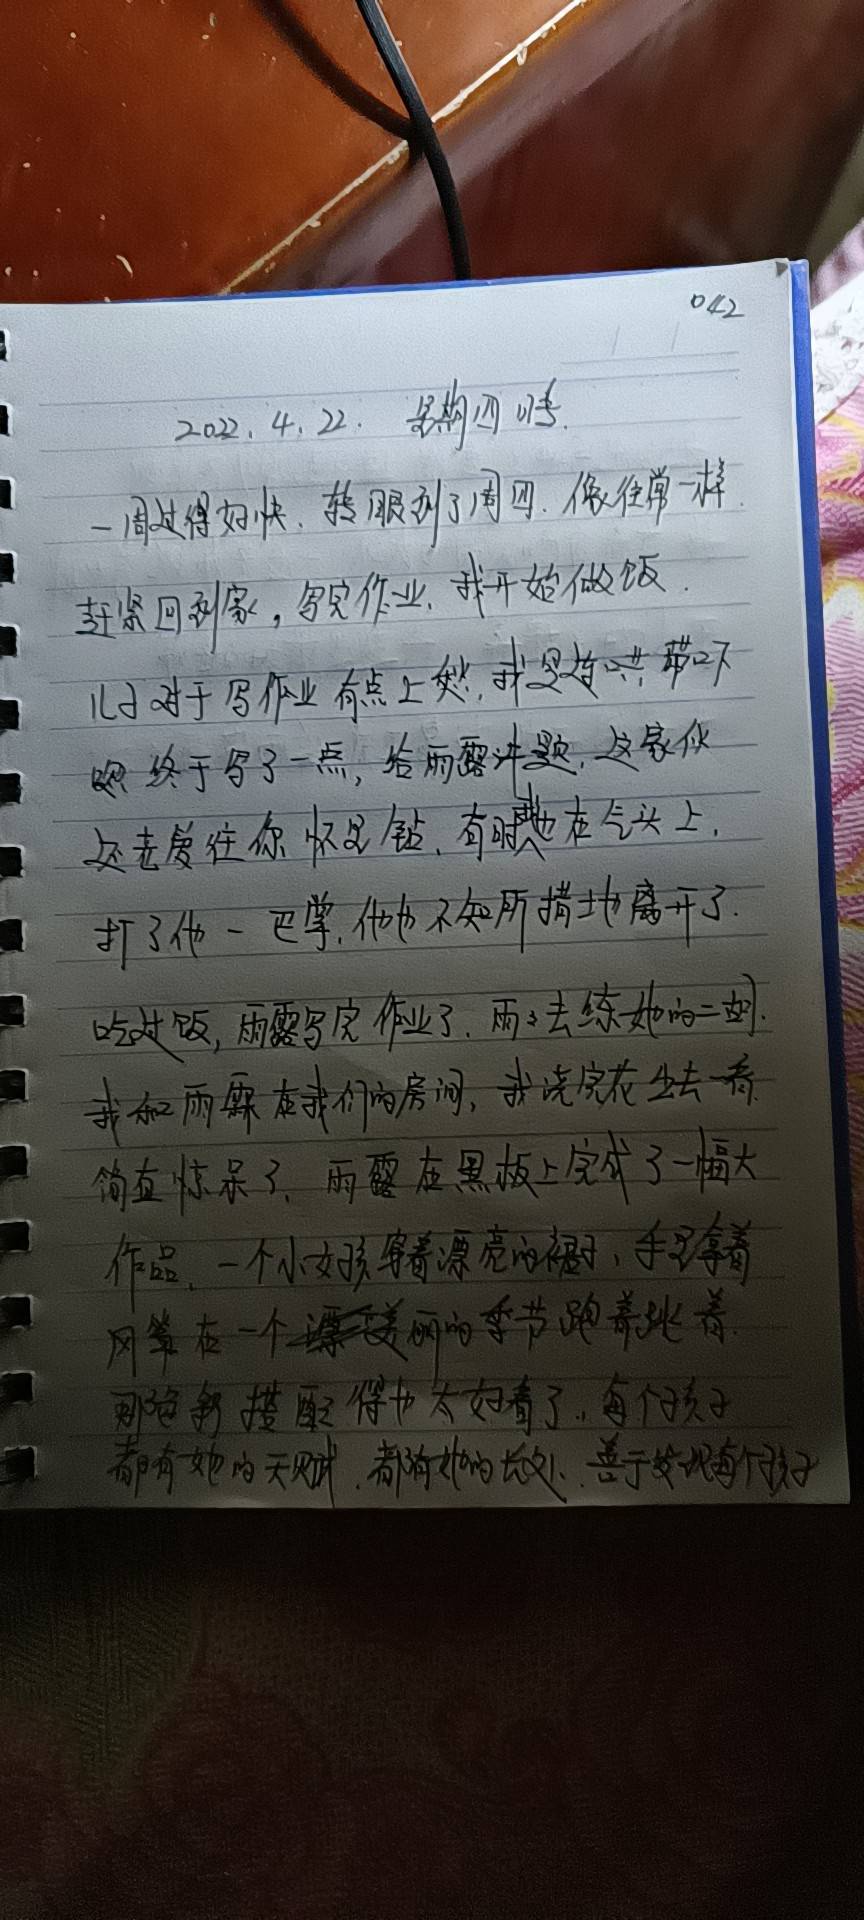 042
2022.4.22. 星期四 晴.
一周过得好快.转眼到了周四.像往常一样.
赶紧回到家,写完作业.我开始做饭.
儿子对于写作业有点上愁,我是连哄带吓
终于写了一点,给雨露讲题,这家伙
还老爱往你怀里钻.有时我也在气头上,
打了他一巴掌.他也不知所措地离开了.
吃过饭,雨露写完作业了.雨雨去练她的二胡.
我和雨霖在我们的房间,我洗完花出去一看.
简直惊呆了.雨露在黑板上完成了一幅大
作品.一个小女孩穿着漂亮的裙子,手里拿着
风筝在一个美丽的季节跑着跳着.
那色彩搭配得也太好看了.每个孩子
都有她的天赋.都有她的长处.善于发现每个孩子